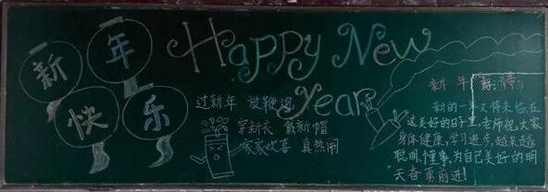 新年快乐
Happy New
Year
过新年 放鞭炮
穿新衣 戴新帽
家家欢喜 真热闹
新年寄语：
新的一年又将来临,在
这美好的日子里,老师祝大家
身体健康,学习进步,越来越
聪明、懂事,为自己美好的明
天奋革前进!